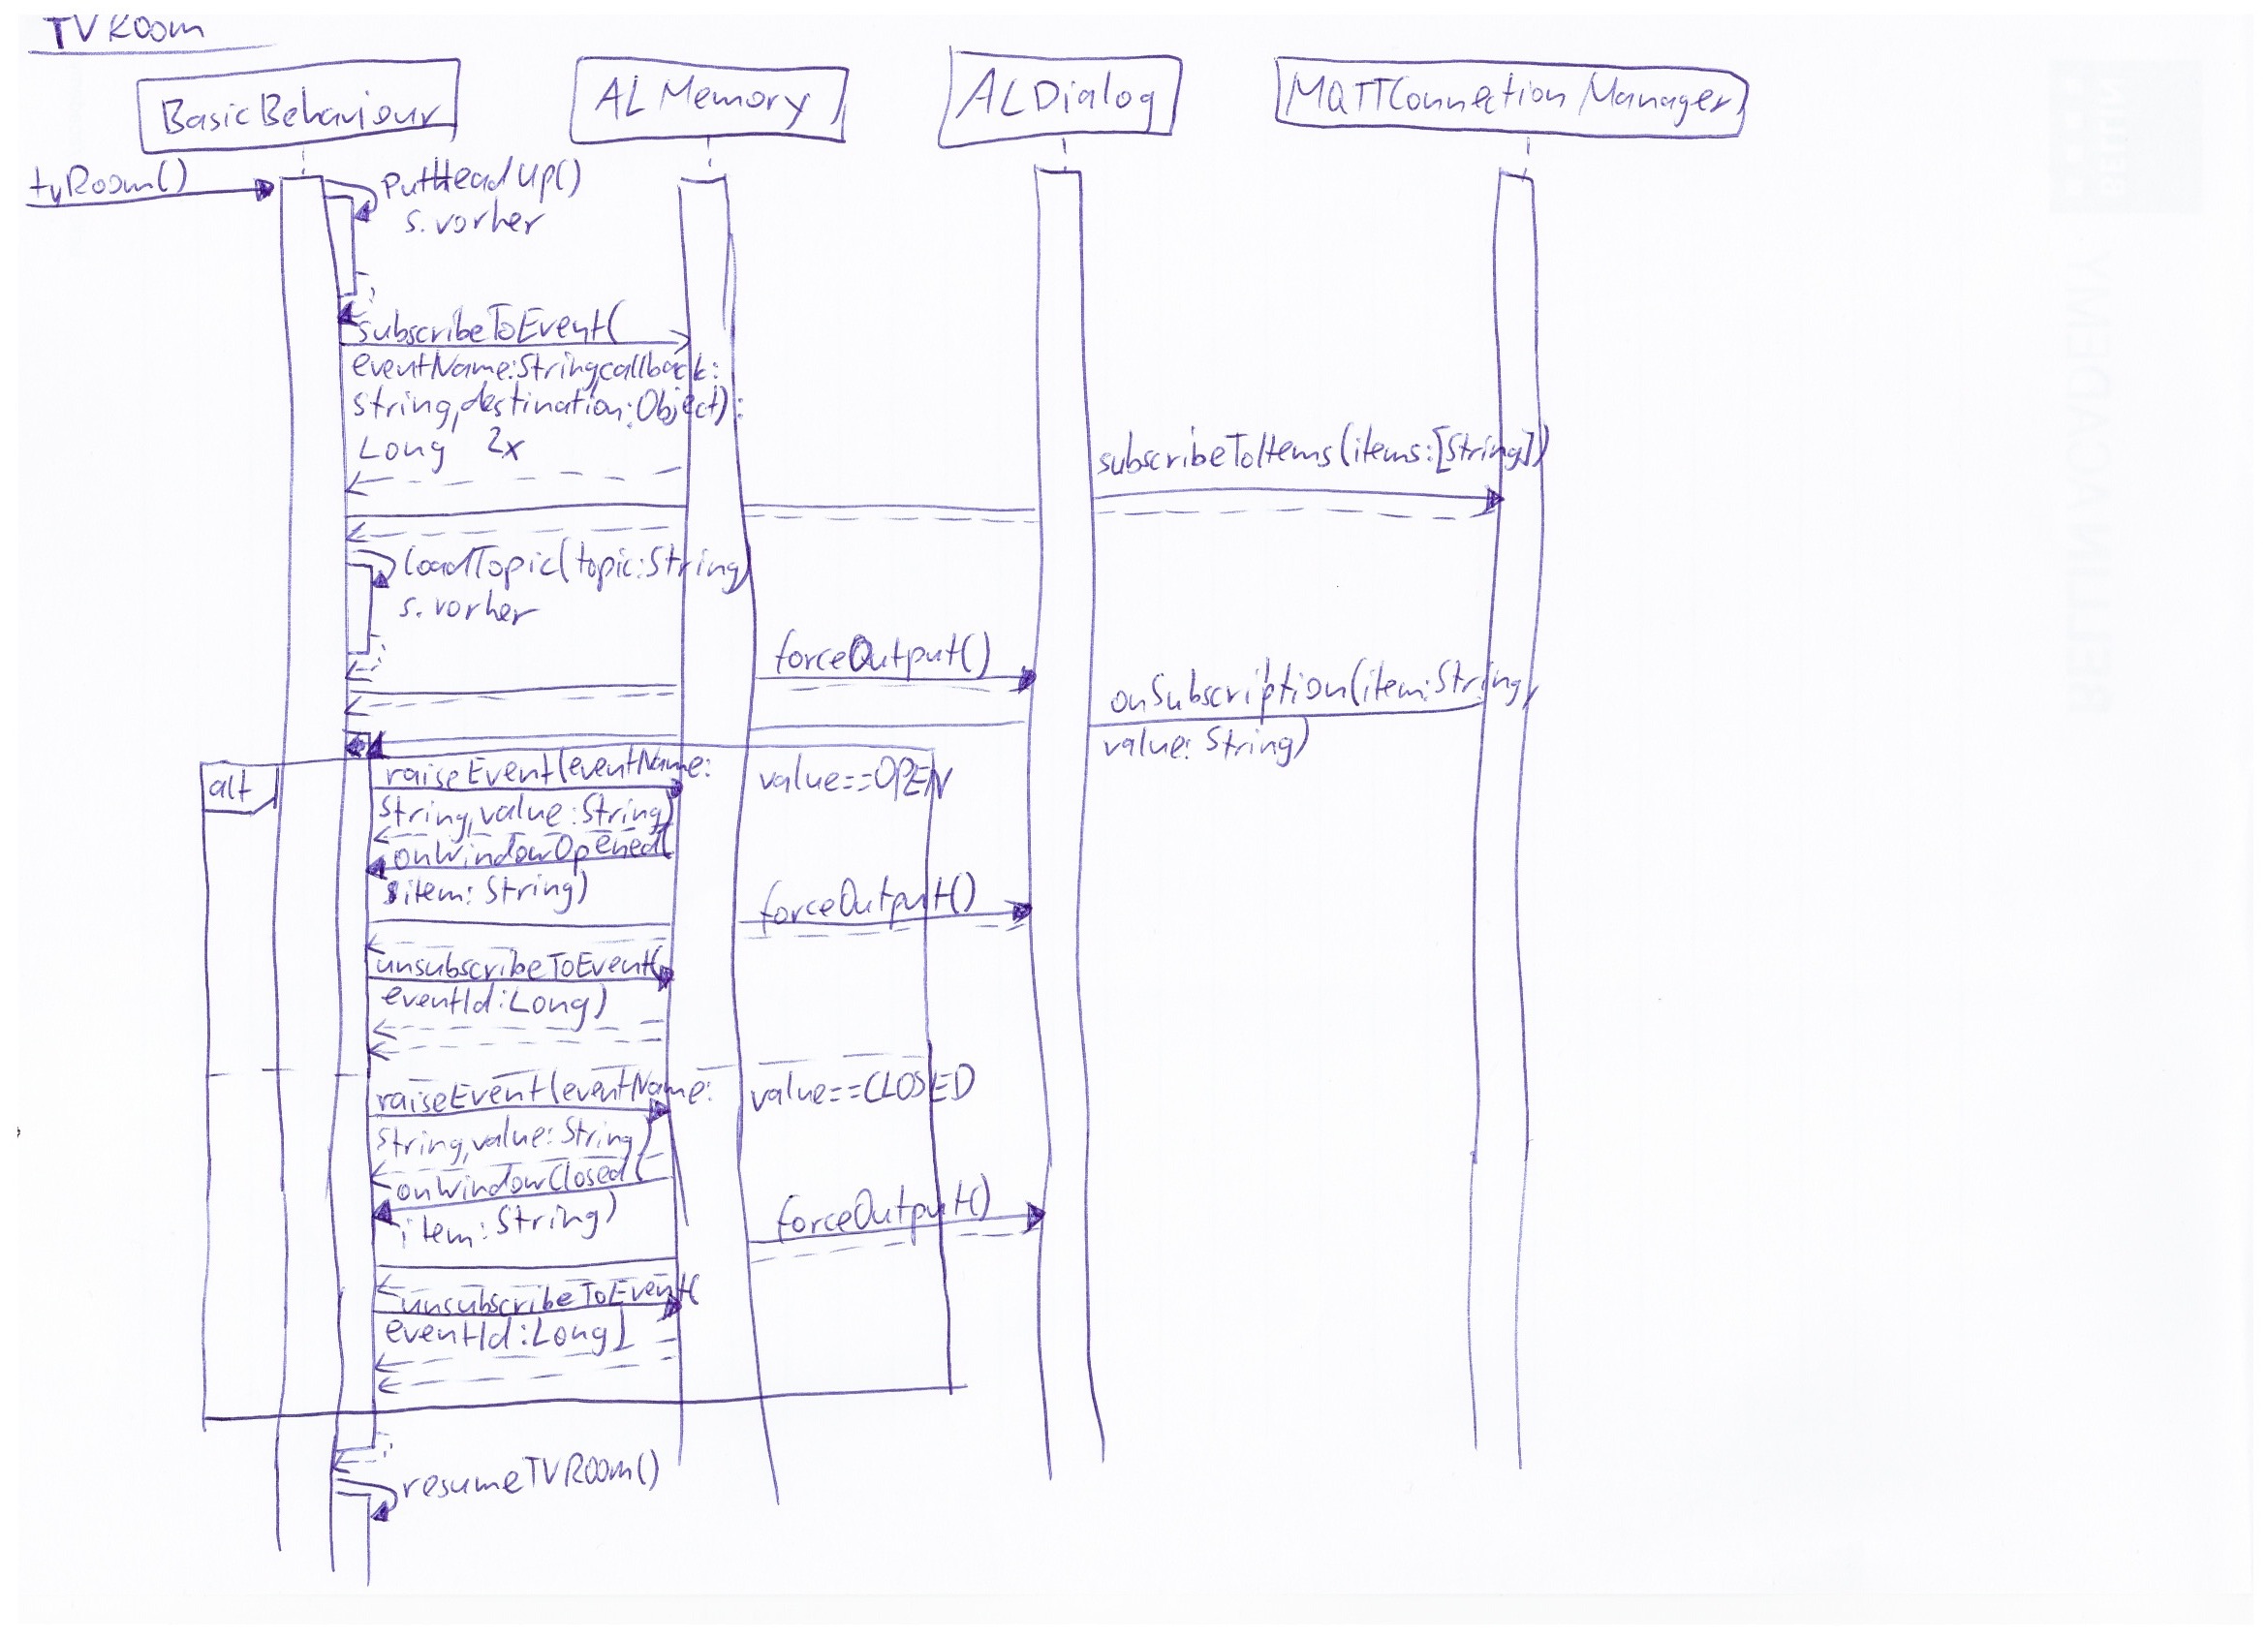 TV Room
BasicBehaviour
ALMemory
ALDialog
MQTTConnectionManager
tvRoom()
putHeadUp()
s. vorher
subscribeToEvent(
eventName:String,callback:
String,destination:Object):
Long 2x
subscribeToItems(items:[String])
loadTopic(topic:String)
s. vorher
forceOutput()
onSubscription(item:String,
value: String)
alt
raiseEvent(eventName:
String,value:String)
value==OPEN
onWindowOpened(
item: String)
forceOutput()
unsubscribeToEvent(
eventId:Long)
raiseEvent(eventName:
String,value:String)
value==CLOSED
onWindowClosed(
item: String)
forceOutput()
unsubscribeToEvent(
eventId:Long)
resumeTVRoom()